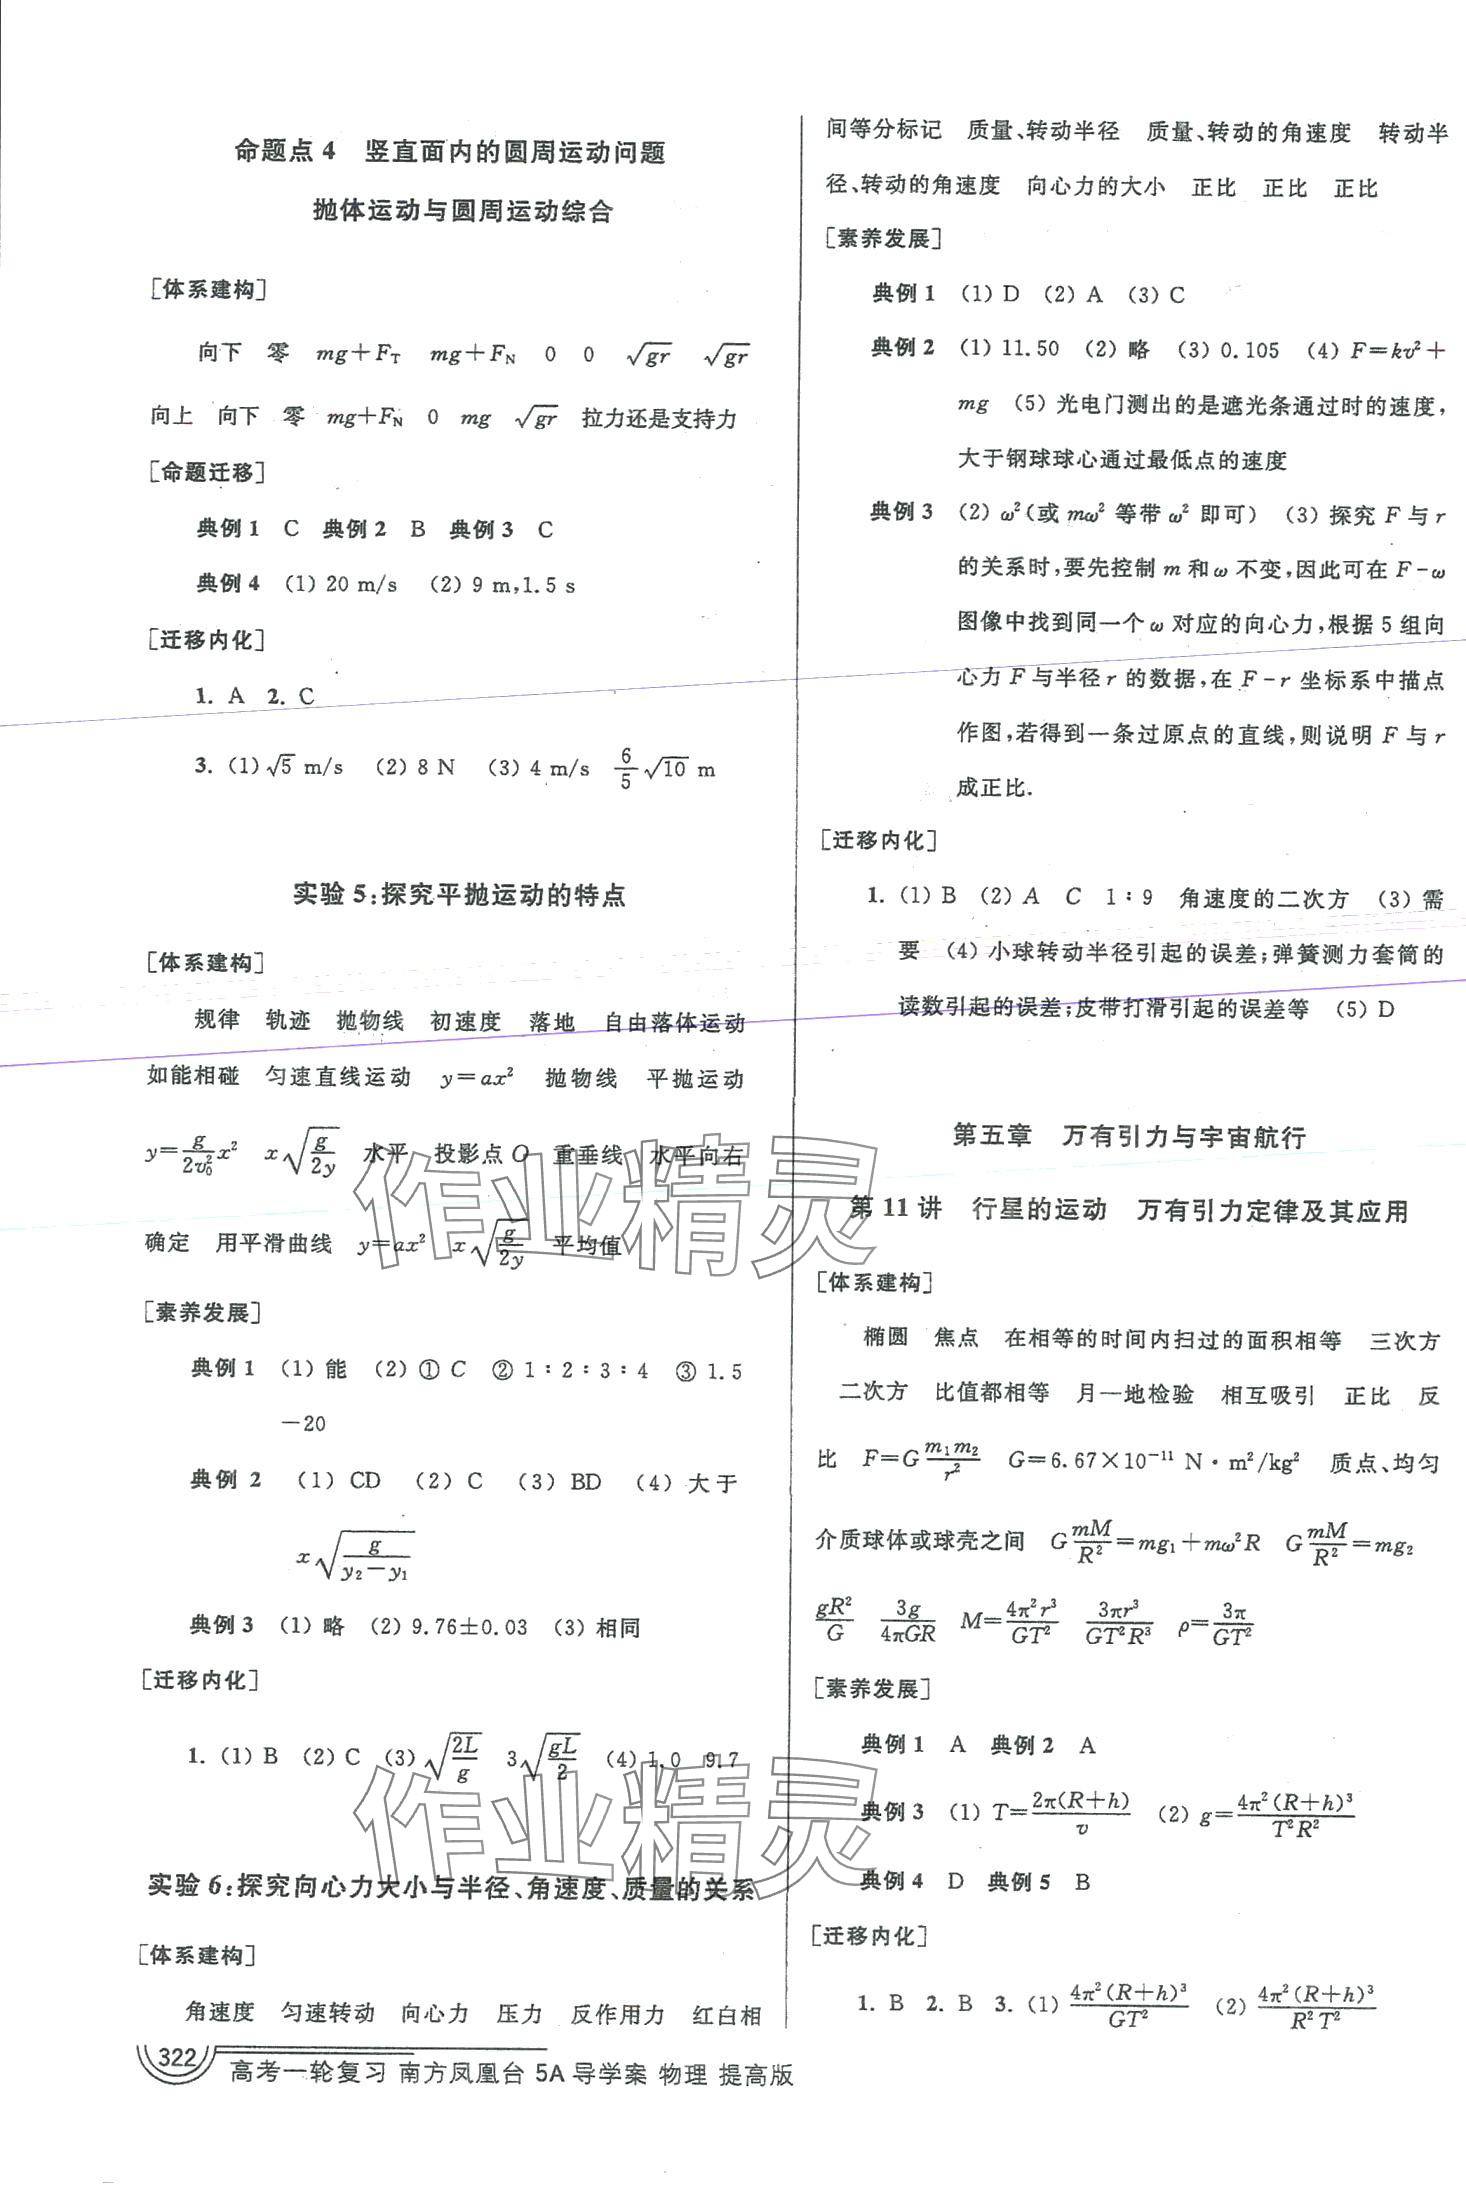 命题点 4　竖直面内的圆周运动问题
抛体运动与圆周运动综合
[体系建构]
向下　零　mg＋F_T　mg＋F_N　0　0　√gr　√gr
向上　向下　零　mg＋F_N　0　mg　√gr　拉力还是支持力
[命题迁移]
典例 1　C　典例 2　B　典例 3　C
典例 4　(1) 20 m/s　(2) 9 m,1.5 s
[迁移内化]
1. A　2. C
3. (1) √5 m/s　(2) 8 N　(3) 4 m/s　6/5 √10 m
实验 5：探究平抛运动的特点
[体系建构]
规律　轨迹　抛物线　初速度　落地　自由落体运动
如能相碰　匀速直线运动　y＝ax²　抛物线　平抛运动
y＝g/(2v₀²) x²　x√(g/2y)　水平　投影点 O　重垂线　水平向右
确定　用平滑曲线　y＝ax²　x√(g/2y)　平均值
[素养发展]
典例 1　(1) 能　(2) ① C　② 1∶2∶3∶4　③ 1.5
－20
典例 2　(1) CD　(2) C　(3) BD　(4) 大于
x√(g/(y₂－y₁))
典例 3　(1) 略　(2) 9.76±0.03　(3) 相同
[迁移内化]
1. (1) B　(2) C　(3) √(2L/g)　3√(gL/2)　(4) 1.0　9.7
实验 6：探究向心力大小与半径、角速度、质量的关系
[体系建构]
角速度　匀速转动　向心力　压力　反作用力　红白相
322
高考一轮复习 南方凤凰台 5A 导学案 物理 提高版
间等分标记　质量、转动半径　质量、转动的角速度　转动半
径、转动的角速度　向心力的大小　正比　正比　正比
[素养发展]
典例 1　(1) D　(2) A　(3) C
典例 2　(1) 11.50　(2) 略　(3) 0.105　(4) F＝kv²＋
mg　(5) 光电门测出的是遮光条通过时的速度，
大于钢球球心通过最低点的速度
典例 3　(2) ω²(或 mω² 等带 ω² 即可)　(3) 探究 F 与 r
的关系时，要先控制 m 和 ω 不变，因此可在 F－ω
图像中找到同一个 ω 对应的向心力，根据 5 组向
心力 F 与半径 r 的数据，在 F－r 坐标系中描点
作图，若得到一条过原点的直线，则说明 F 与 r
成正比.
[迁移内化]
1. (1) B　(2) A　C　1∶9　角速度的二次方　(3) 需
要　(4) 小球转动半径引起的误差；弹簧测力套筒的
读数引起的误差；皮带打滑引起的误差等　(5) D
第五章　万有引力与宇宙航行
第 11 讲　行星的运动　万有引力定律及其应用
[体系建构]
椭圆　焦点　在相等的时间内扫过的面积相等　三次方
二次方　比值都相等　月—地检验　相互吸引　正比　反
比　F＝G m₁m₂/r²　G＝6.67×10⁻¹¹ N·m²/kg²　质点、均匀
介质球体或球壳之间　G mM/R²＝mg₁＋mω²R　G mM/R²＝mg₂
gR²/G　3g/(4πGR)　M＝4π²r³/(GT²)　3πr³/(GT²R³)　ρ＝3π/(GT²)
[素养发展]
典例 1　A　典例 2　A
典例 3　(1) T＝2π(R＋h)/v　(2) g＝4π²(R＋h)³/(T²R²)
典例 4　D　典例 5　B
[迁移内化]
1. B　2. B　3. (1) 4π²(R＋h)³/(GT²)　(2) 4π²(R＋h)³/(R²T²)
作业精灵
作业精灵